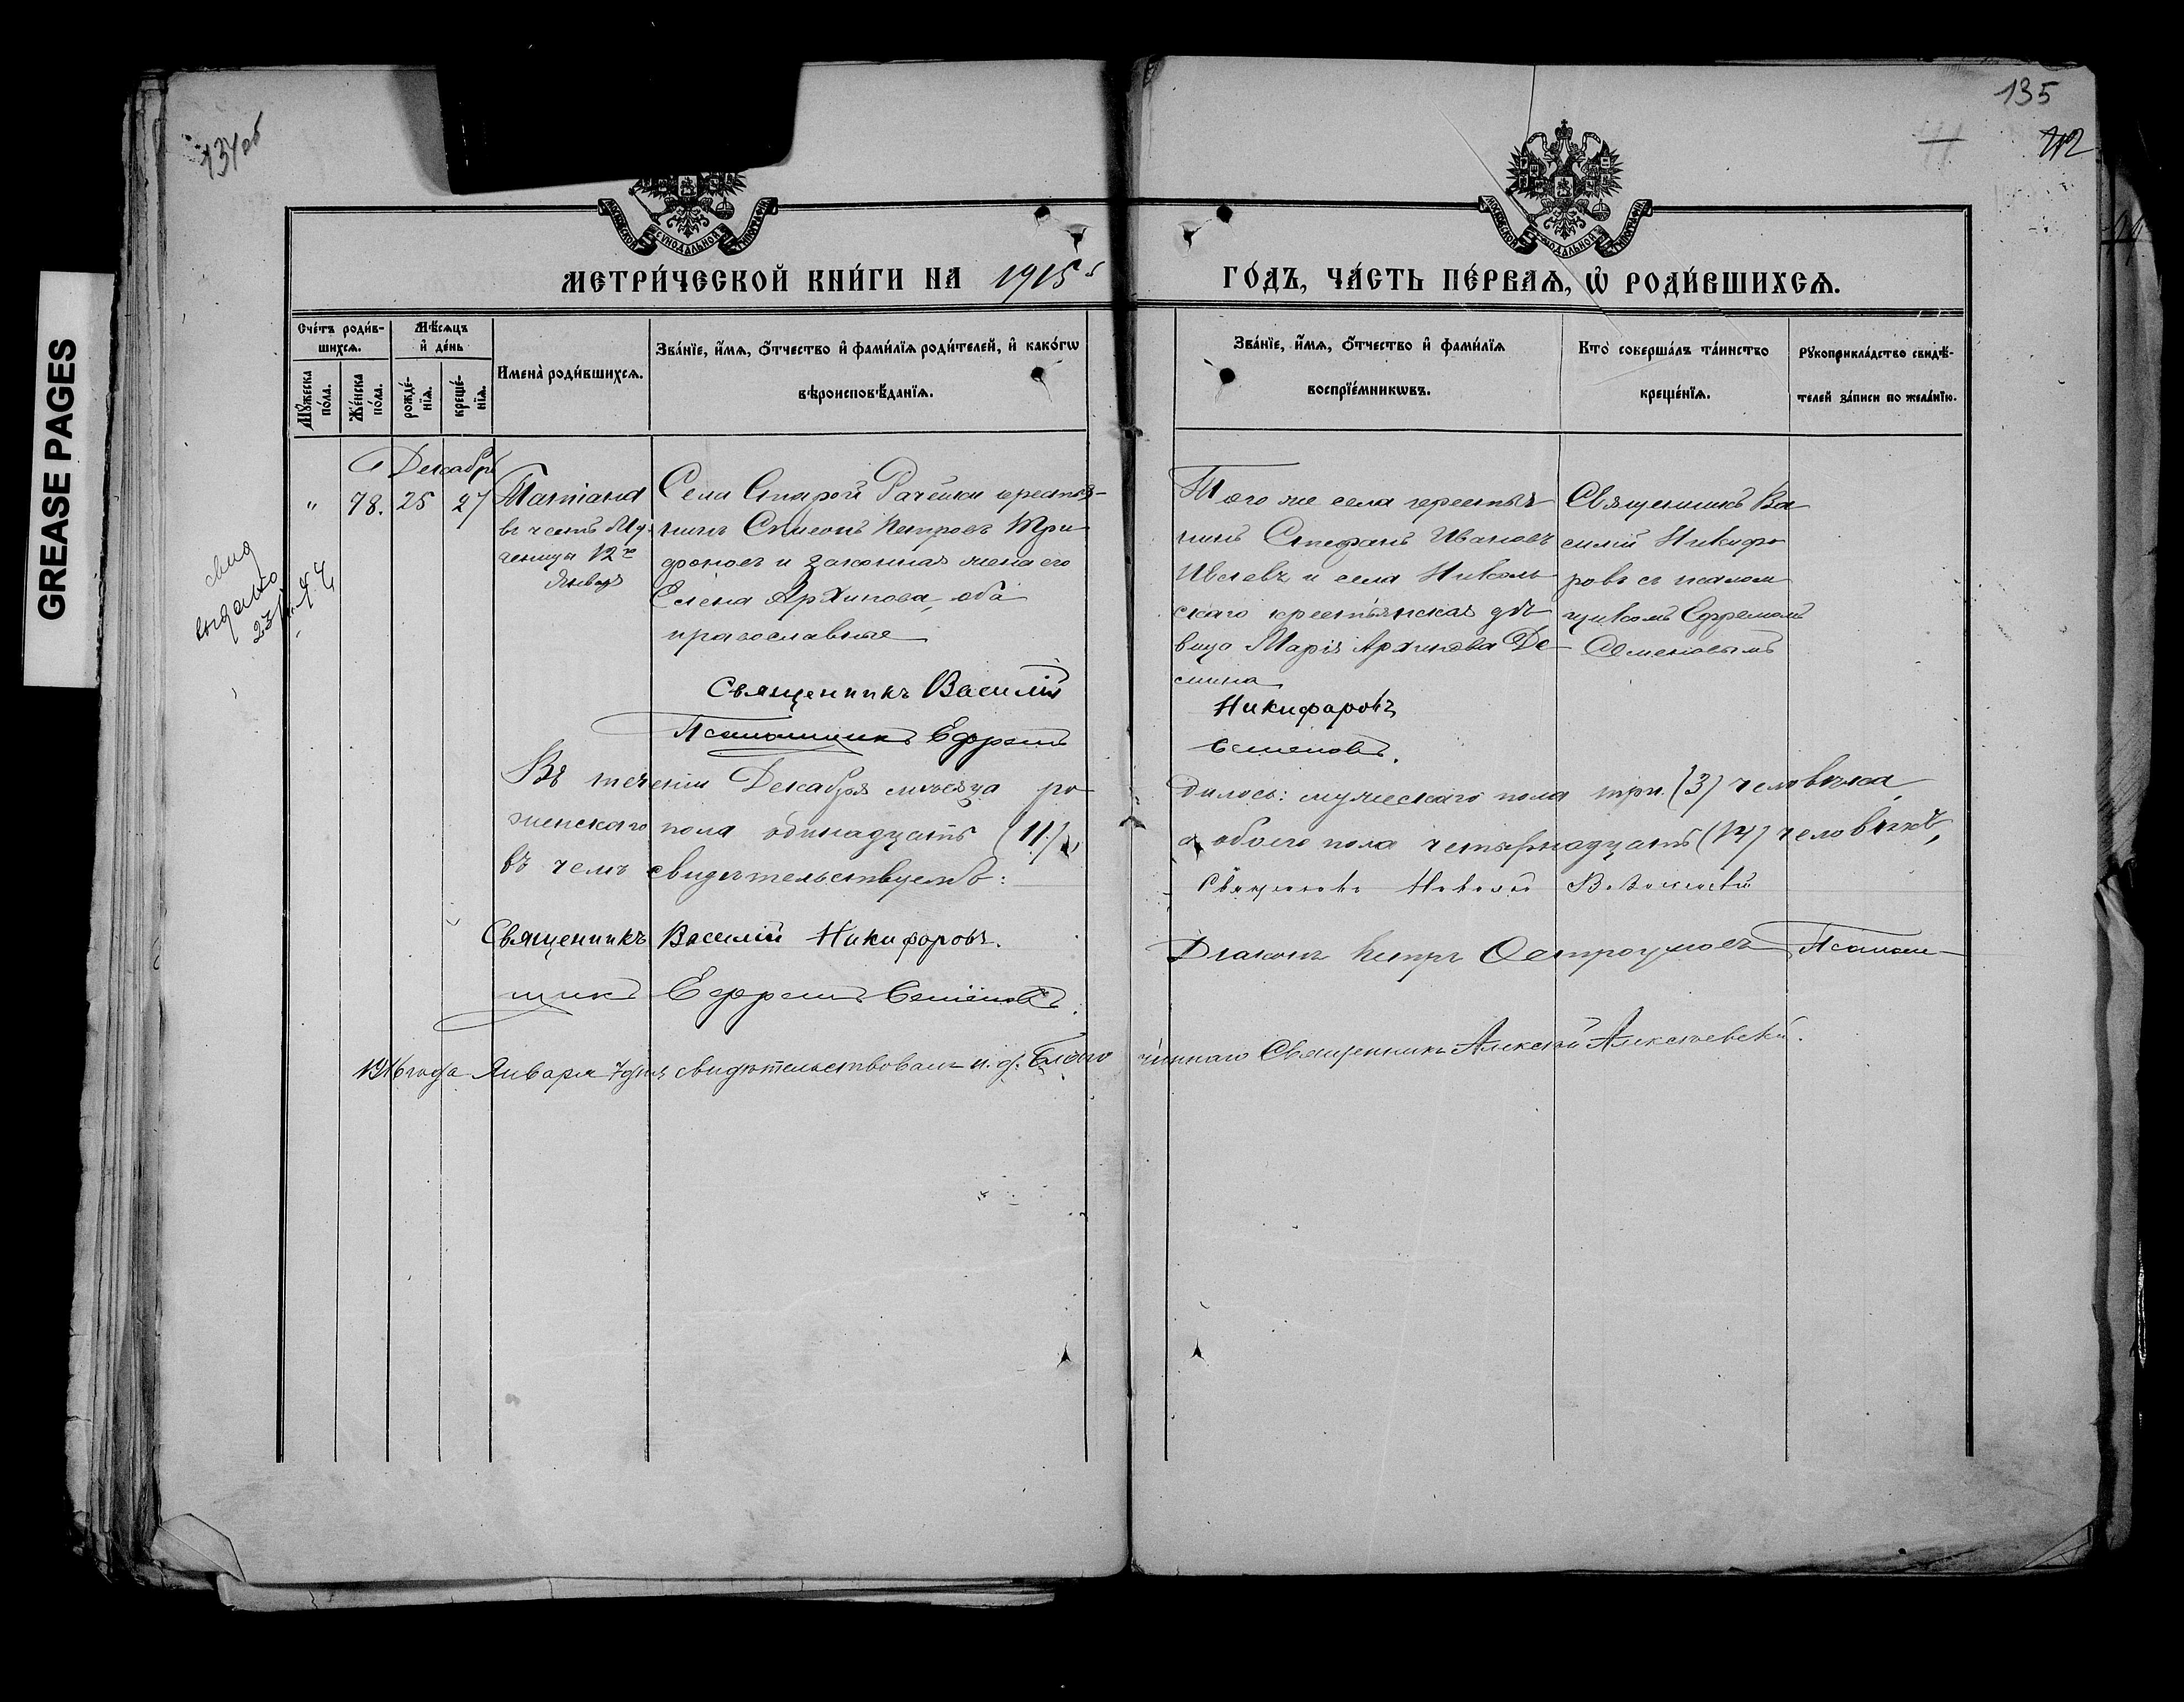 GREASE PAGES
134об
135
МОСКОВСКОЙ СѴНОДАЛЬНОЙ ТИПОГРАФІИ
МОСКОВСКОЙ СѴНОДАЛЬНОЙ ТИПОГРАФІИ
МЕТРИ́ЧЕСКОЙ КНИ́ГИ НА 1915
ГО́ДЪ, ЧА́СТЬ ПЕ́РВАѦ, Ѡ҆ РОДИ́ВШИХСѦ.
Сче́тъ роди́в-
шихсѧ.
Мꙋ́жеска по́ла.
Же́нска по́ла.
Мѣ́сѧцъ
и҆ де́нь
рожде́-
нїѧ.
креще́-
нїѧ.
Имена̀ роди́вшихсѧ.
Зва́нїе, и҆́мѧ, ѻ҆́тчество и҆ фами́лїѧ роди́телей, и҆ како́гѡ
вѣроисповѣ́данїѧ.
Зва́нїе, и҆́мѧ, ѻ҆́тчество и҆ фами́лїѧ
воспрїе́мникѡвъ.
Кто̀ соверша́лъ та́инство
креще́нїѧ.
Рꙋкоприкла́дство свидѣ́-
телей за́писи по жела́нїю.
Декабрь
" 78. 25 27
Татіана
въ честь Му-
ченицы 12го
Января
Села Старой Рачейки крестья-
нинъ Симеонъ Петровъ Три-
фоновъ и законная жена его
Елена Архипова, оба
православные
Того же села крестья-
нинъ Стефанъ Ивановъ
Ивлевъ и села Николь-
скаго крестьянская дѣ-
вица Марія Архипова Де-
мина
Священникъ Ва-
силій Никифо-
ровъ съ псалом-
щикомъ Ефремомъ
Семеновымъ
свид
выдано
23/
44
Священникъ Василій
Никифоровъ
Псаломщикъ Ефремъ
Семеновъ.
Въ теченіи Декабря мѣсяца ро-
дилось: мужескаго пола три (3) человѣка,
женскаго пола одинадцать (11),
а обоего пола четырнадцать (14) человѣкъ,
въ чемъ свидѣтельствуемъ:
Священникъ Николай
Священникъ Василій Никифоровъ.
Діаконъ Петръ Остроумовъ Псалом-
щикъ Ефремъ Семеновъ.
1916 года Января 7 дня свидѣтельствовалъ и. д. Благо-
чиннаго Священникъ Алексѣй Алексѣевскій.